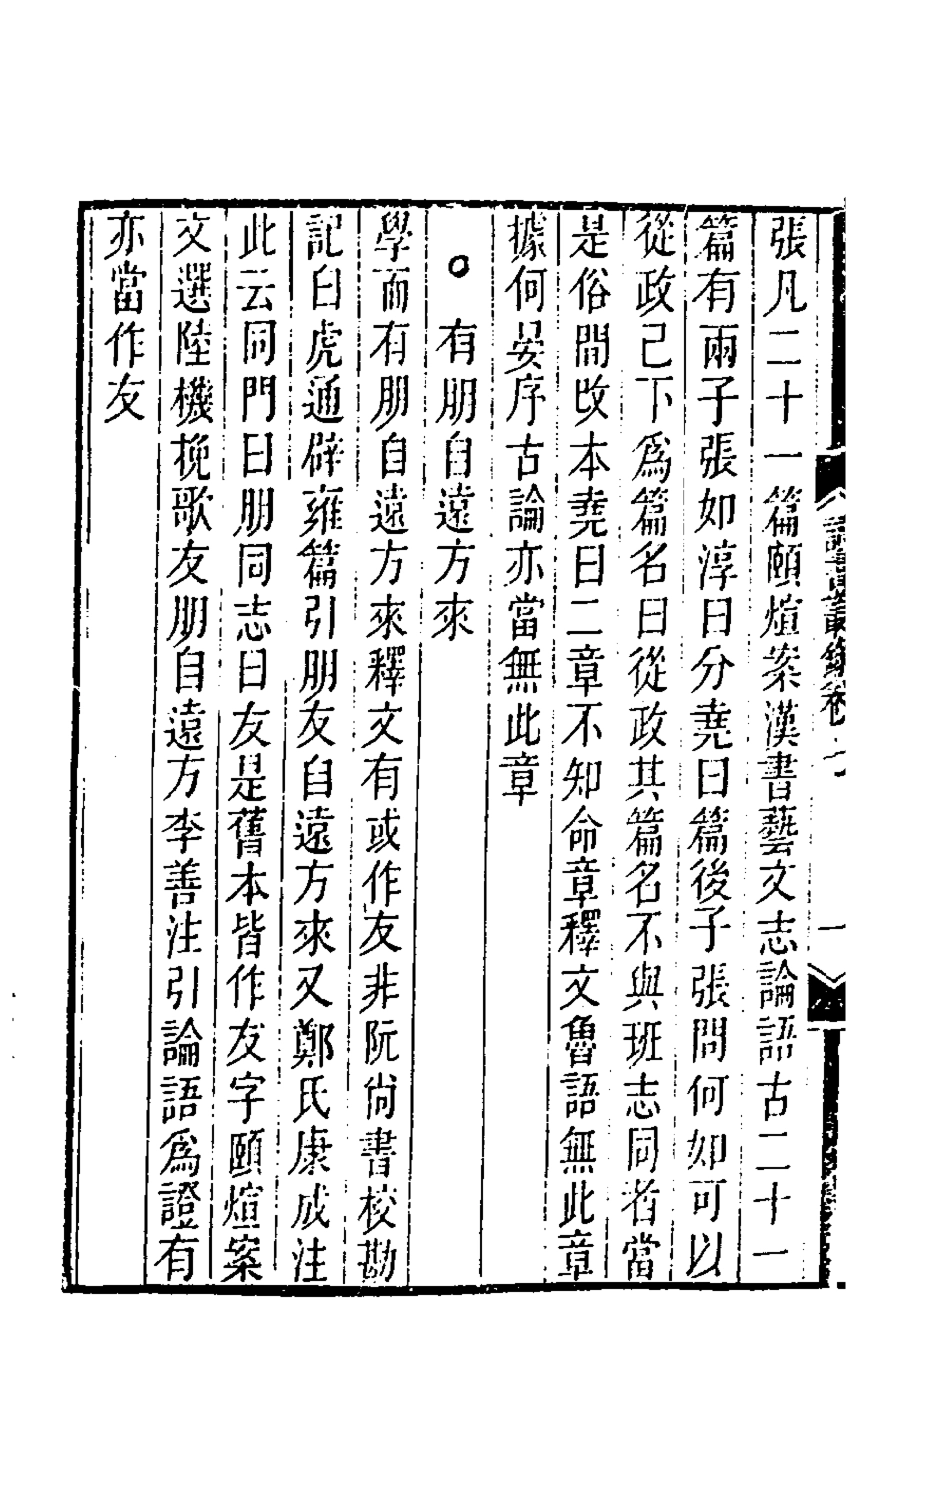 張凡二十一篇頤煊案漢書藝文志論語古二十一
篇有兩子張如淳曰分堯曰篇後子張問何如可以
從政已下爲篇名曰從政其篇名不與班志同者當
是俗間改本堯曰二章不知命章釋文魯語無此章
據何晏序古論亦當無此章
○有朋自遠方來
學而有朋自遠方來釋文有或作友非阮尚書校勘
記白虎通辟雍篇引朋友自遠方來又鄭氏康成注
此云同門曰朋同志曰友是舊本皆作友字頤煊案
文選陸機挽歌友朋自遠方李善注引論語爲證有
亦當作友
讀書叢錄卷七
一